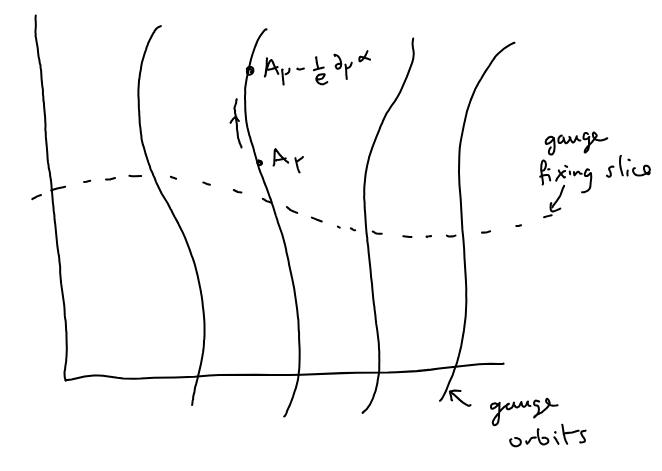 Aμ - 1/e ∂μ α
Aμ
gauge
fixing slice
gauge
orbits